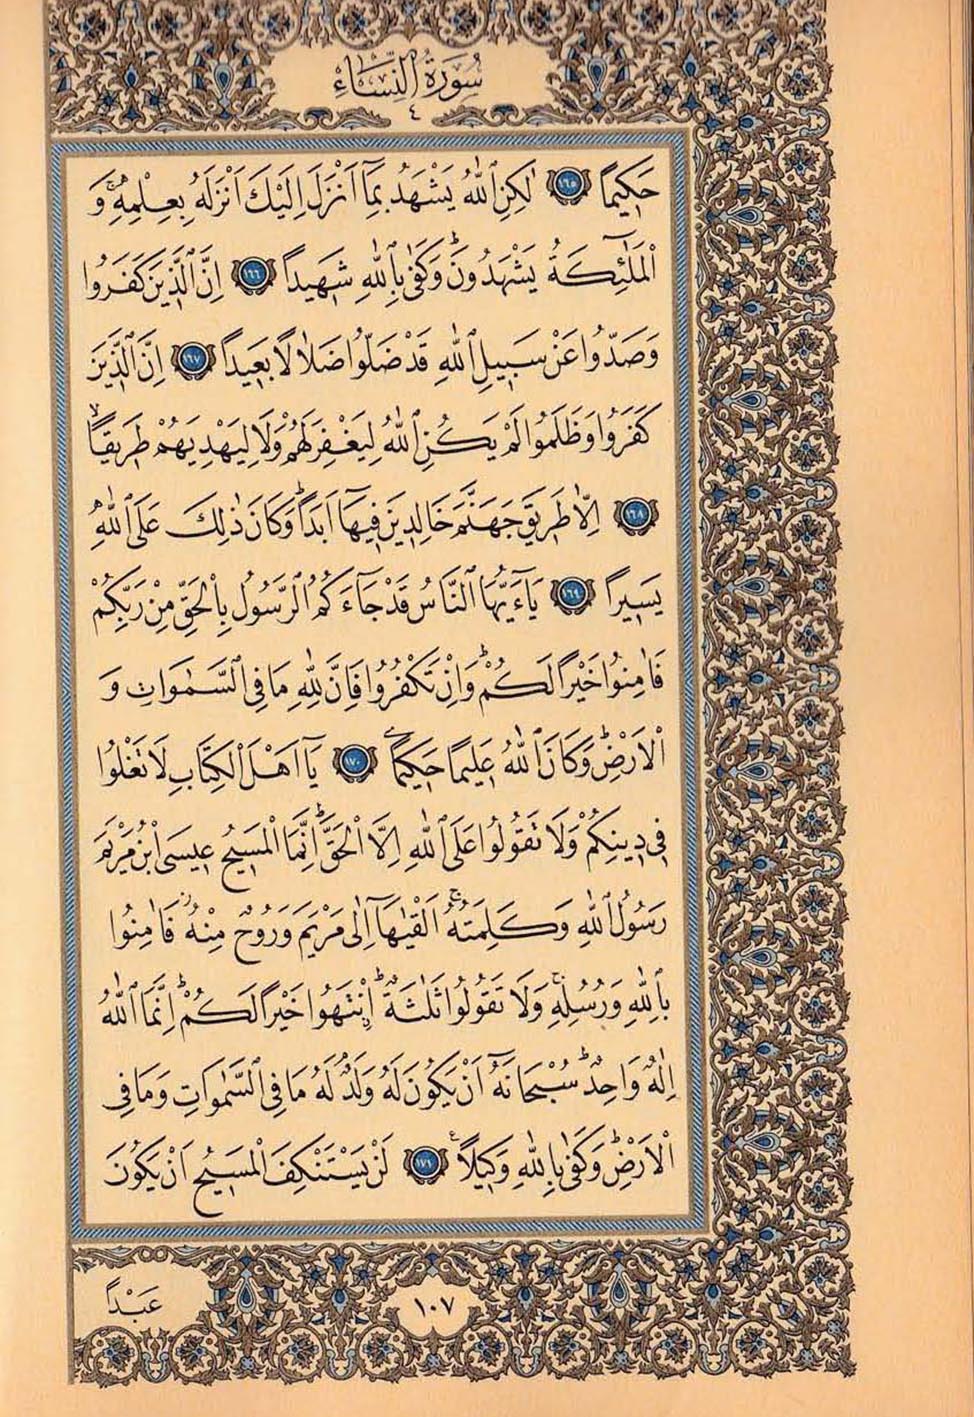 سُورَةُ النِّسَٓاءِ
٤
حَكٖيماً ١٦٥ لٰكِنِ اللّٰهُ يَشْهَدُ بِمَٓا اَنْزَلَ اِلَيْكَ اَنْزَلَهُ بِعِلْمِهٖۚ وَ
الْمَلٰٓئِكَةُ يَشْهَدُونَؕ وَكَفٰى بِاللّٰهِ شَهٖيداً ١٦٦ اِنَّ الَّذٖينَ كَفَرُوا
وَصَدُّوا عَنْ سَبٖيلِ اللّٰهِ قَدْ ضَلُّوا ضَلَالاً بَعٖيداً ١٦٧ اِنَّ الَّذٖينَ
كَفَرُوا وَظَلَمُوا لَمْ يَكُنِ اللّٰهُ لِيَغْفِرَ لَهُمْ وَلَا لِيَهْدِيَهُمْ طَرٖيقاًۙ
١٦٨ اِلَّا طَرٖيقَ جَهَنَّمَ خَالِدٖينَ فٖيهَٓا اَبَداًؕ وَكَانَ ذٰلِكَ عَلَى اللّٰهِ
يَسٖيراً ١٦٩ يَٓا اَيُّهَا النَّاسُ قَدْ جَٓاءَكُمُ الرَّسُولُ بِالْحَقِّ مِنْ رَبِّكُمْ
فَاٰمِنُوا خَيْراً لَكُمْؕ وَاِنْ تَكْفُرُوا فَاِنَّ لِلّٰهِ مَا فِي السَّمٰوَاتِ وَ
الْاَرْضِؕ وَكَانَ اللّٰهُ عَلٖيماً حَكٖيماً ١٧٠ يَٓا اَهْلَ الْكِتَابِ لَا تَغْلُوا
فٖي دٖينِكُمْ وَلَا تَقُولُوا عَلَى اللّٰهِ اِلَّا الْحَقَّؕ اِنَّمَا الْمَسٖيحُ عٖيسَى ابْنُ مَرْيَمَ
رَسُولُ اللّٰهِ وَكَلِمَتُهُۚ اَلْقٰيهَٓا اِلٰى مَرْيَمَ وَرُوحٌ مِنْهُؗ فَاٰمِنُوا
بِاللّٰهِ وَرُسُلِهٖۚ وَلَا تَقُولُوا ثَلٰثَةٌؕ اِنْتَهُوا خَيْراً لَكُمْؕ اِنَّمَا اللّٰهُ
اِلٰهٌ وَاحِدٌؕ سُبْحَانَهُٓ اَنْ يَكُونَ لَهُ وَلَدٌۘ لَهُ مَا فِي السَّمٰوَاتِ وَمَا فِي
الْاَرْضِؕ وَكَفٰى بِاللّٰهِ وَكٖيلاً ١٧١ لَنْ يَسْتَنْكِفَ الْمَسٖيحُ اَنْ يَكُونَ
عَبْداً
١٠٧